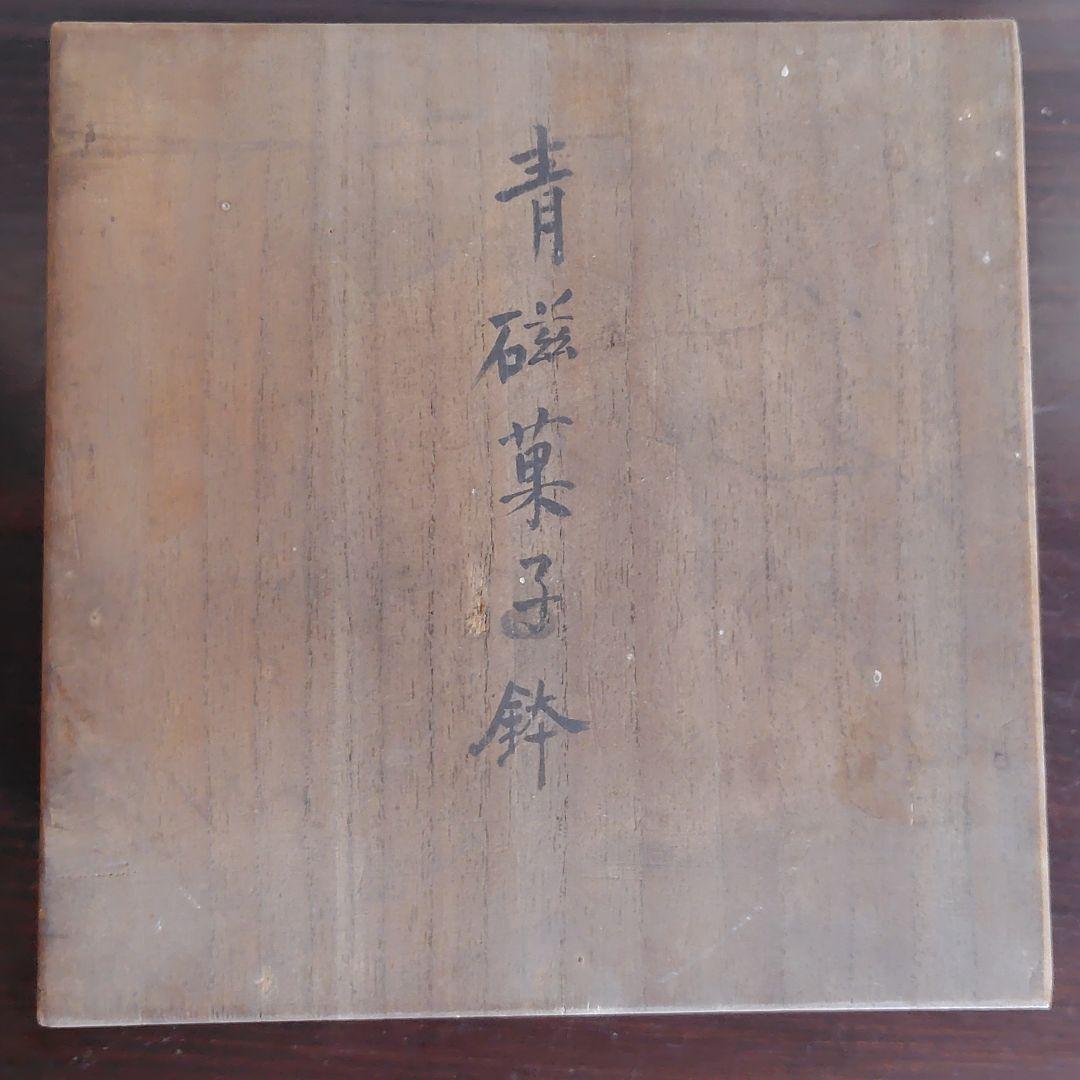 青磁菓子鉢